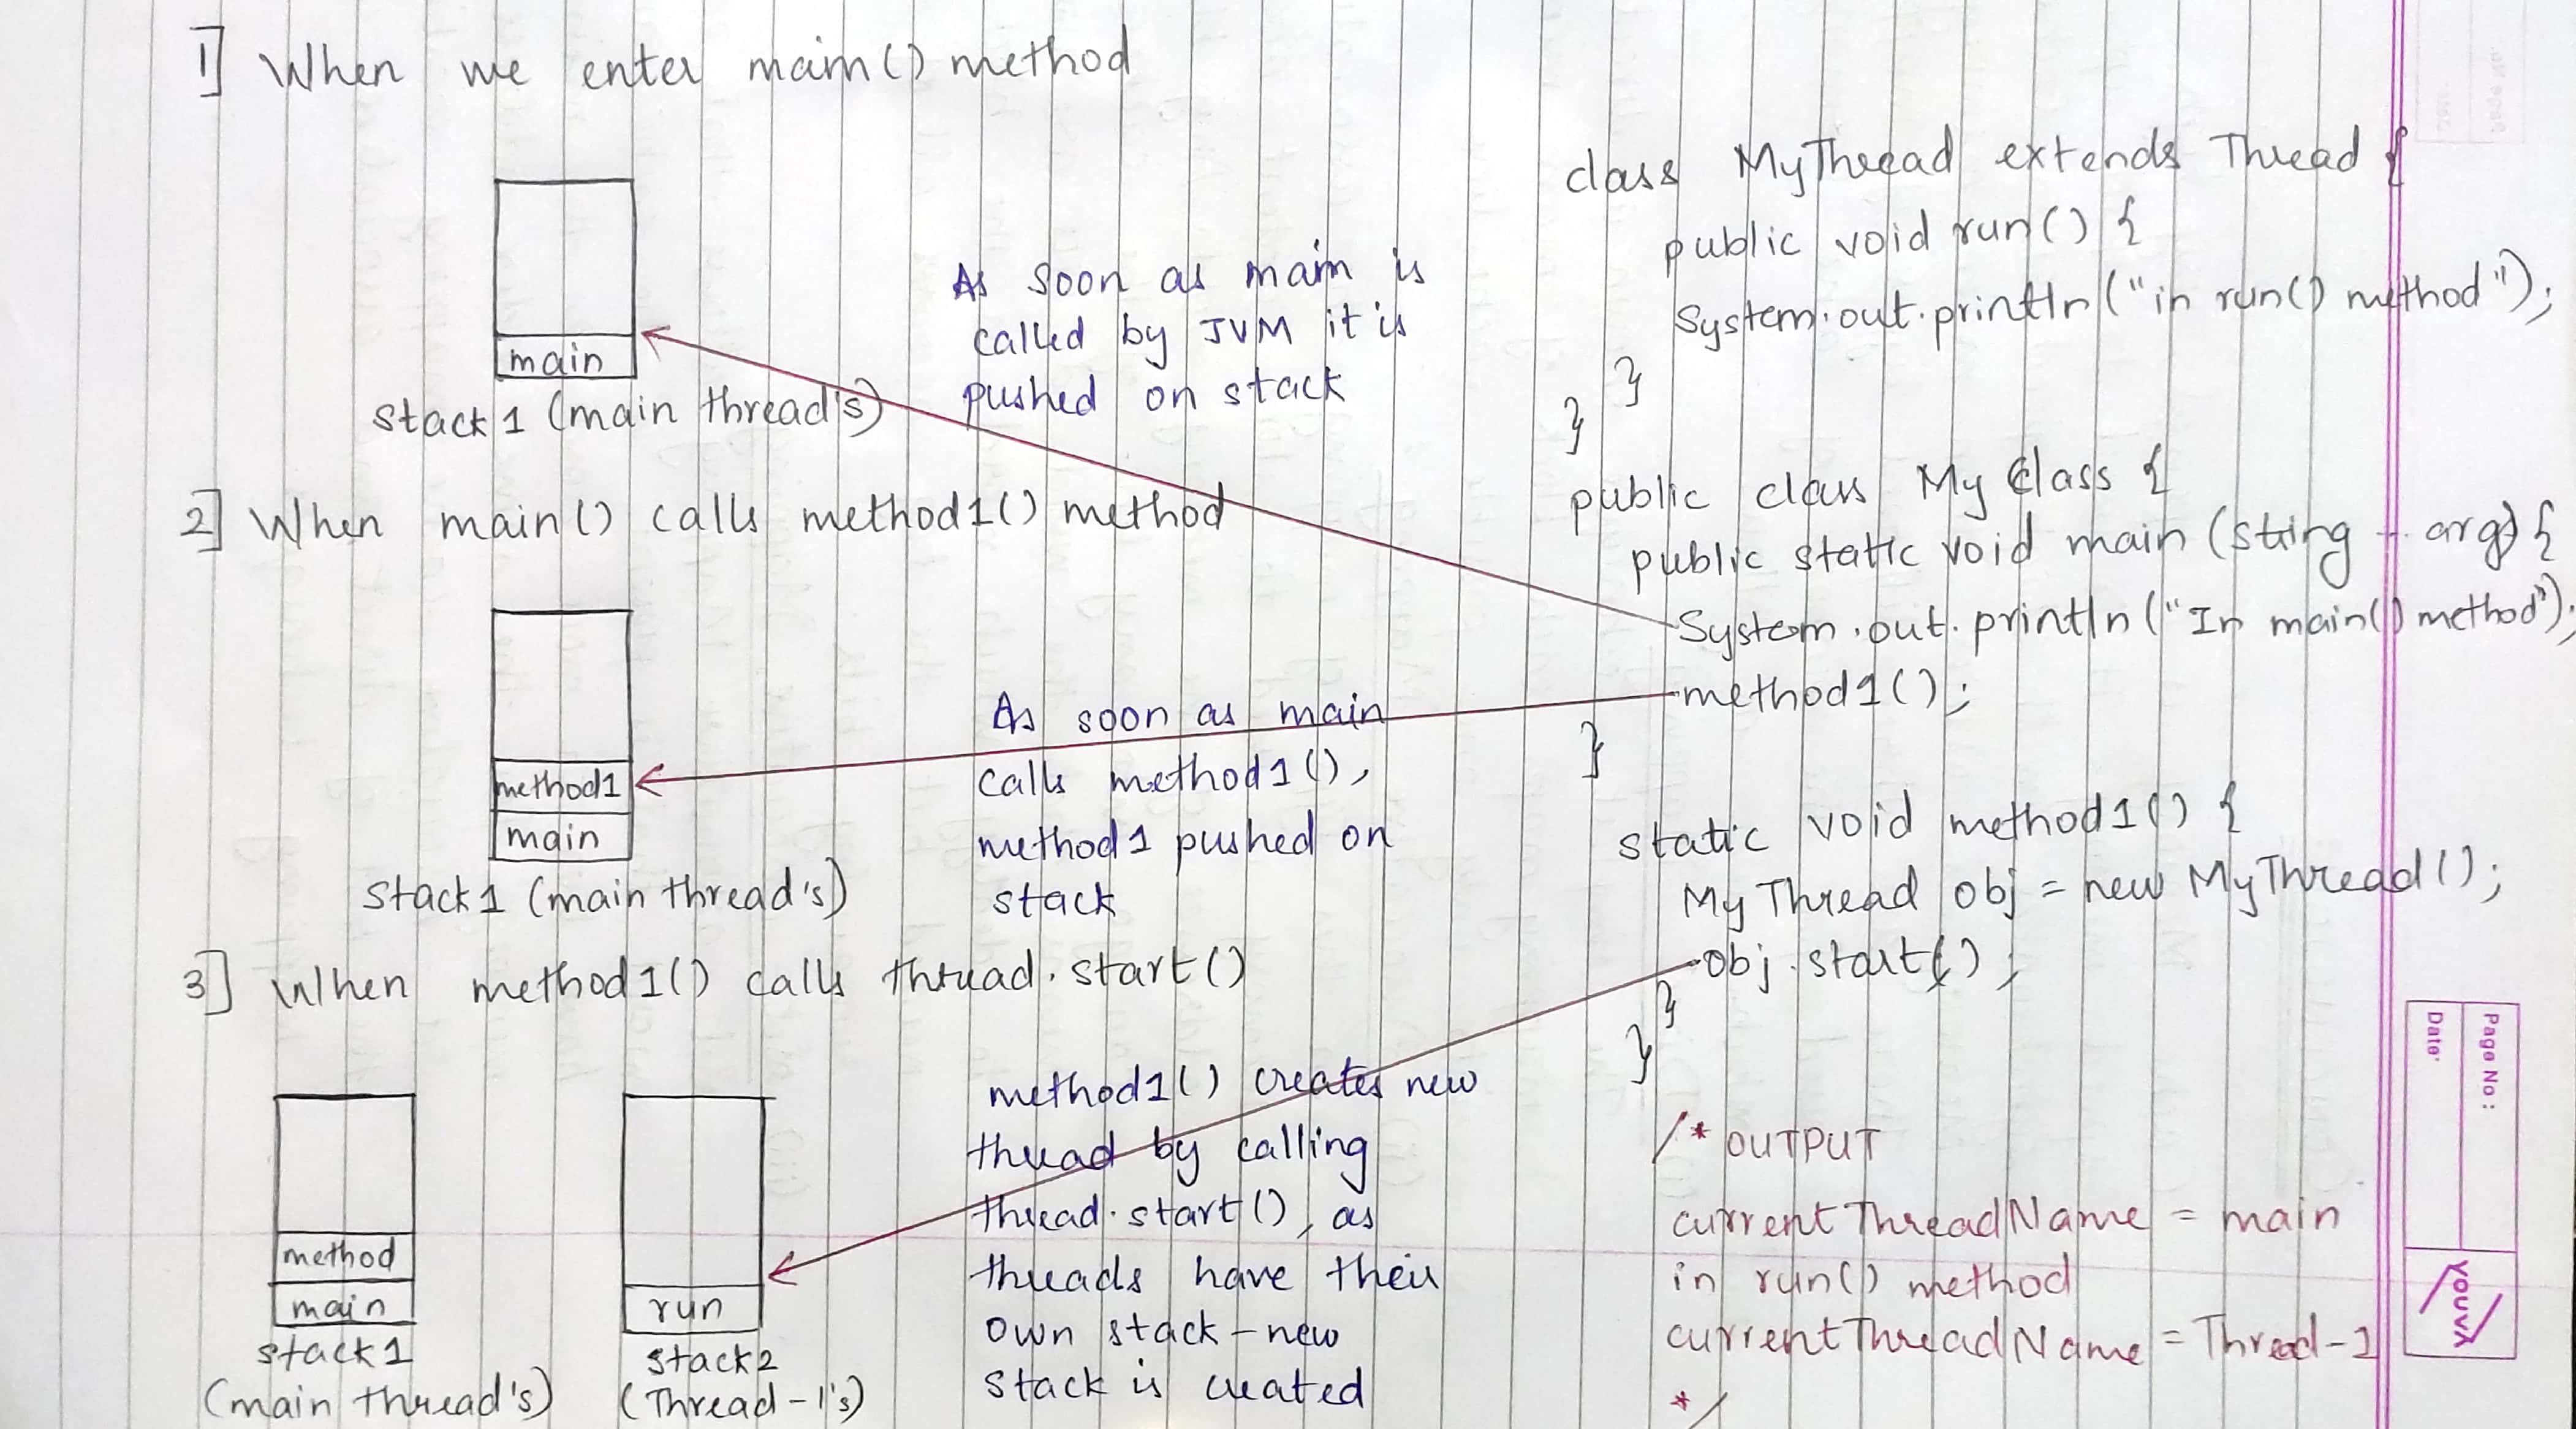 1] When we enter main() method
main
stack 1 (main thread's)
As soon as main is
called by JVM it is
pushed on stack
2] When main() calls method1() method
method1
main
stack1 (main thread's)
As soon as main
calls method1(),
method1 pushed on
stack
3] When method1() calls thread.start()
method
main
stack1
(main thread's)
run
stack2
(Thread-1's)
method1() creates new
thread by calling
thread.start(), as
threads have their
own stack - new
stack is created
class MyThread extends Thread {
public void run() {
System.out.println("in run() method");
}
}
public class MyClass {
public static void main (string .. arg) {
System.out.println("In main() method");
method1();
}
static void method1() {
MyThread obj = new MyThread();
obj.start();
}
}
/* OUTPUT
currentThreadName = main
in run() method
currentThreadName = Thread-1
*/
Page No :
Date:
YOUVA